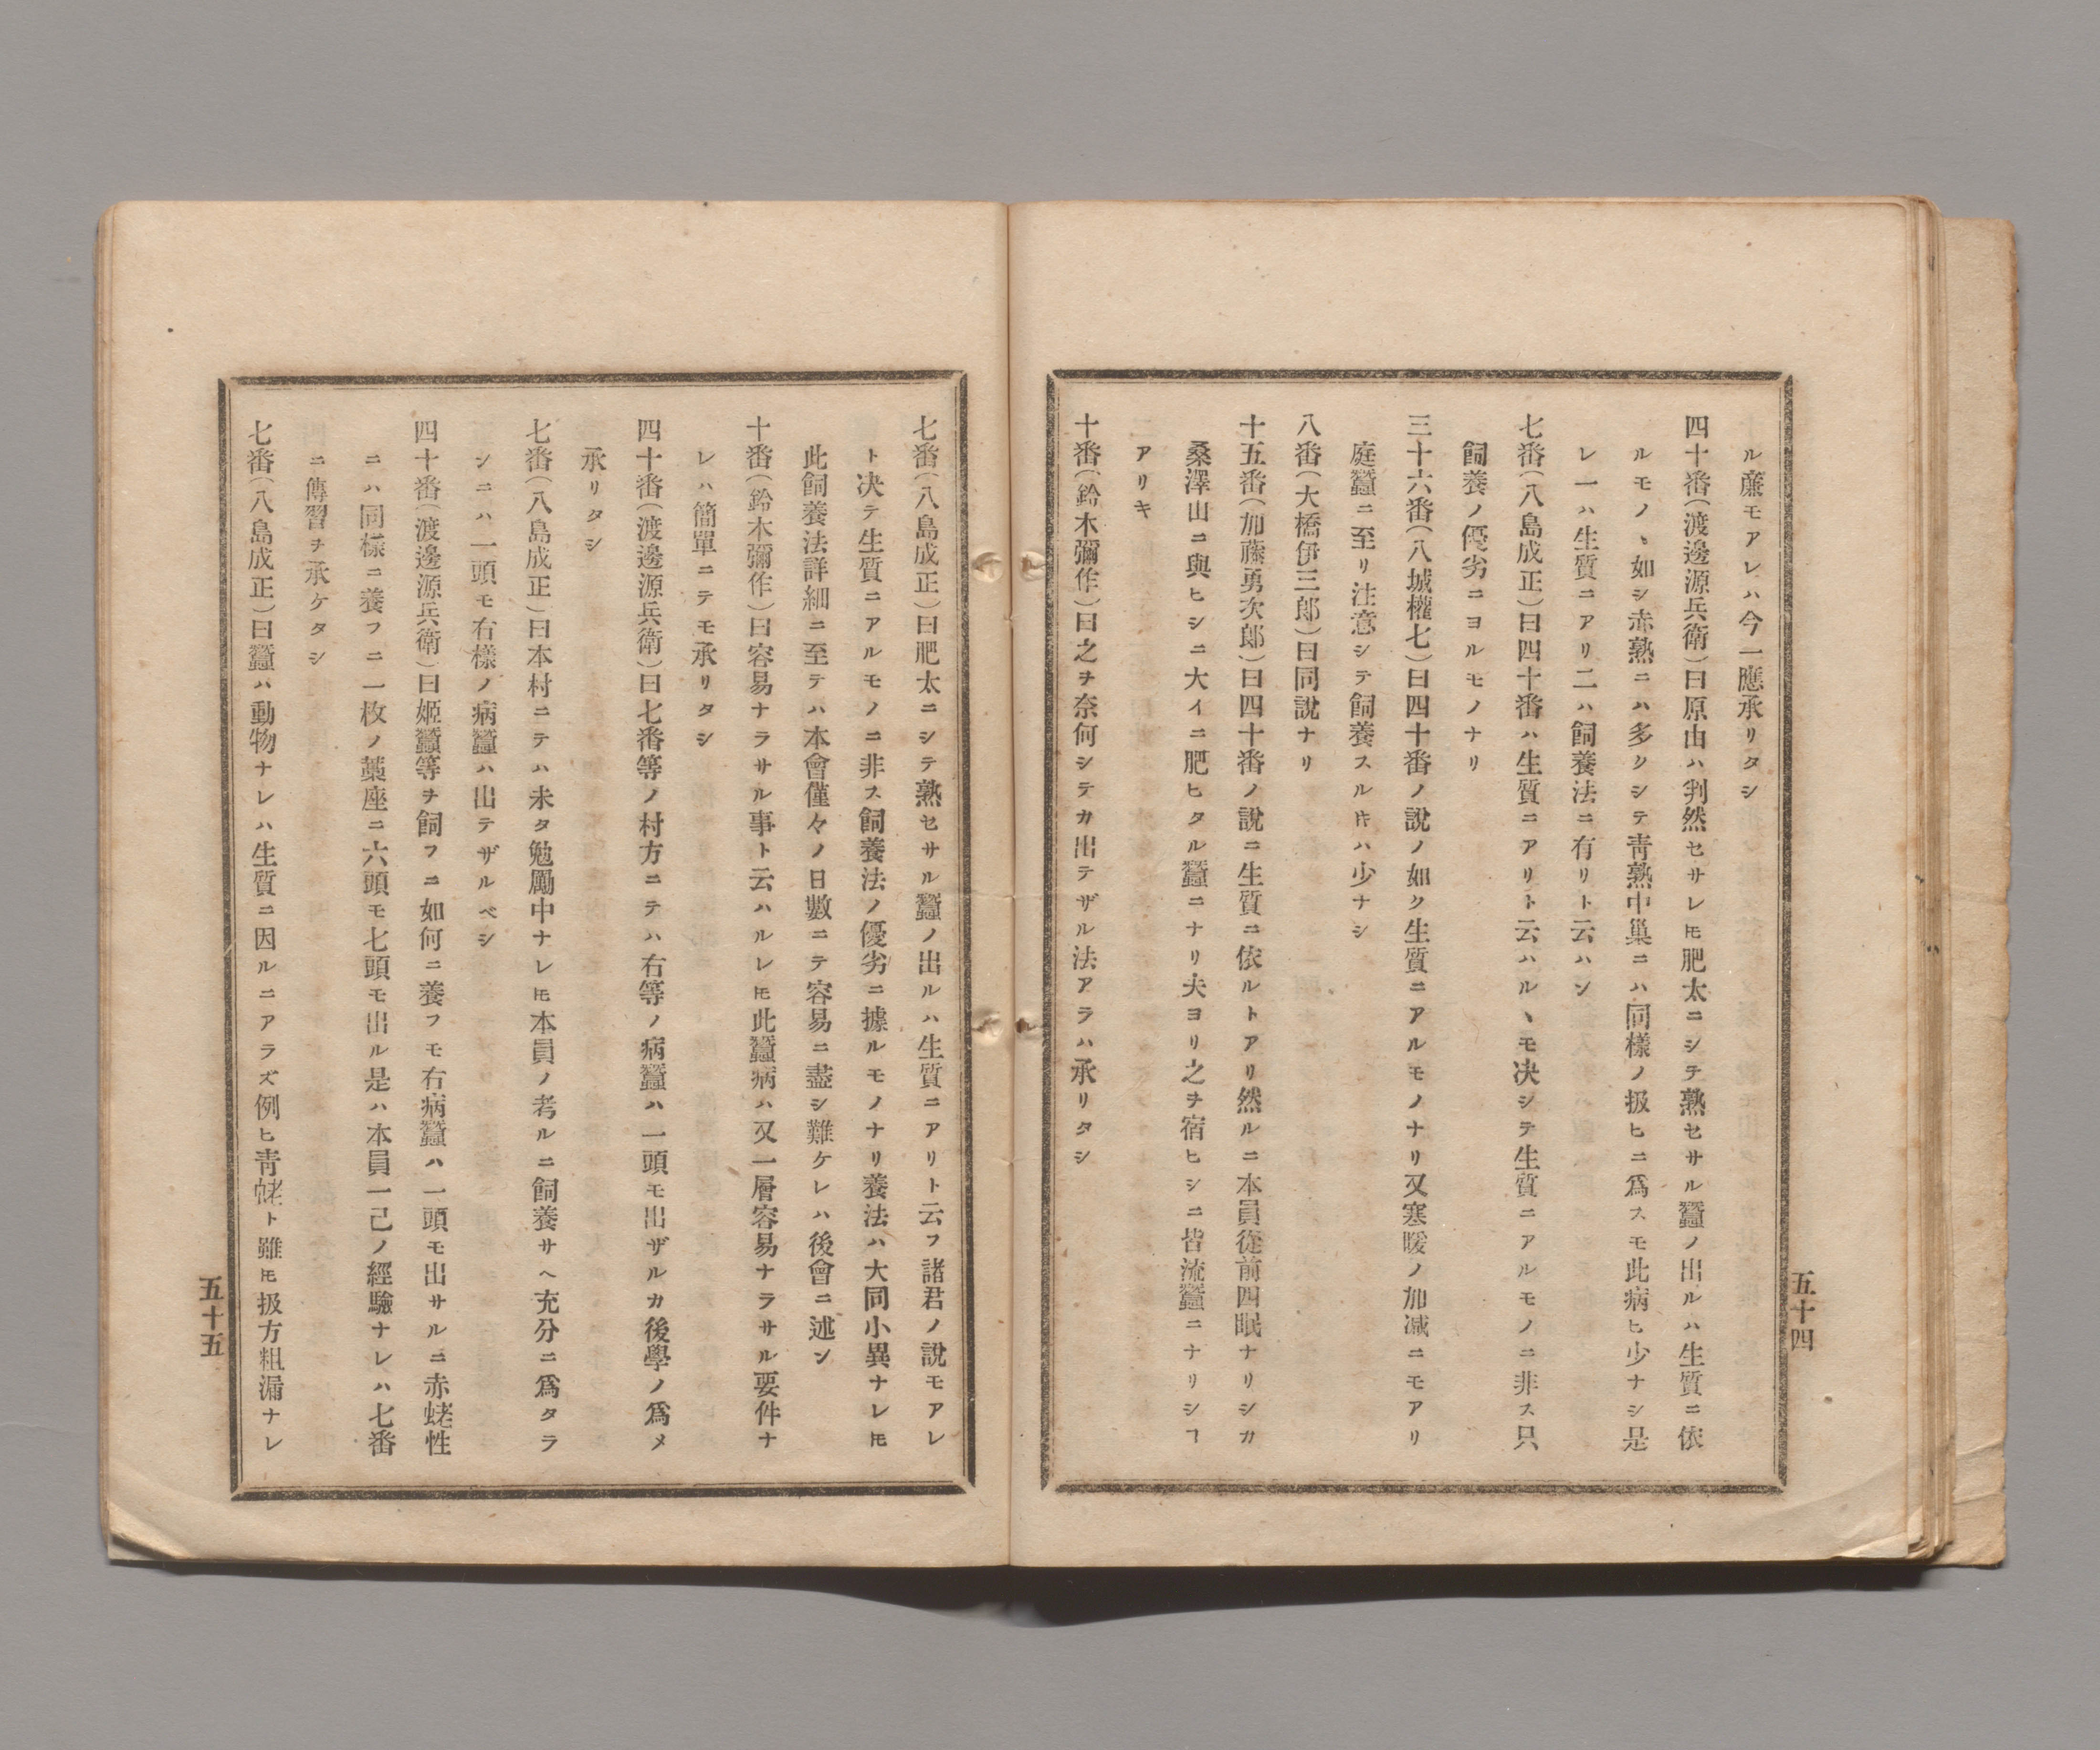 ル廉モアレハ今一應承リタシ
四十番(渡邊源兵衛)曰原由ハ判然セサレ𪜈肥太ニシテ熟セサル蠶ノ出ルハ生質ニ依
ルモノヽ如シ赤熟ニハ多クシテ靑熟中巢ニハ同樣ノ扱ヒニ爲スモ此病ヒ少ナシ是
レ一ハ生質ニアリ二ハ飼養法ニ有リト云ハン
七番(八島成正)曰四十番ハ生質ニアリト云ハルヽモ决シテ生質ニアルモノニ非ス只
飼養ノ優劣ニヨルモノナリ
三十六番(八城權七)曰四十番ノ說ノ如ク生質ニアルモノナリ又寒暖ノ加减ニモアリ
庭蠶ニ至リ注意シテ飼養スル𪜈ハ少ナシ
八番(大橋伊三郎)曰同說ナリ
十五番(加藤勇次郎)曰四十番ノ說ニ生質ニ依ルトアリ然ルニ本員從前四眠ナリシカ
桑澤山ニ與ヒシニ大イニ肥ヒタル蠶ニナリ夫ヨリ之ヲ宿ヒシニ皆流蠶ニナリシヿ
アリキ
十番(鈴木彌作)曰之ヲ奈何シテカ出テザル法アラハ承リタシ
五十四
七番(八島成正)曰肥太ニシテ熟セサル蠶ノ出ルハ生質ニアリト云フ諸君ノ說モアレ
ト决テ生質ニアルモノニ非ス飼養法ノ優劣ニ據ルモノナリ養法ハ大同小異ナレ𪜈
此飼養法詳細ニ至テハ本會僅々ノ日數ニテ容易ニ盡シ難ケレハ後會ニ述ン
十番(鈴木彌作)曰容易ナラサル事ト云ハルレ𪜈此蠶病ハ又一層容易ナラサル要件ナ
レハ簡單ニテモ承リタシ
四十番(渡邊源兵衛)曰七番等ノ村方ニテハ右等ノ病蠶ハ一頭モ出ザルカ後學ノ爲メ
承リタシ
七番(八島成正)曰本村ニテハ未タ勉勵中ナレ𪜈本員ノ考ルニ飼養サヘ充分ニ爲タラ
シニハ一頭モ右樣ノ病蠶ハ出テザルベシ
四十番(渡邊源兵衛)曰姬蠶等ヲ飼フニ如何ニ養フモ右病蠶ハ一頭モ出サルニ赤蛯性
ニハ同樣ニ養フニ一枚ノ藁座ニ六頭モ七頭モ出ル是ハ本員一己ノ經驗ナレハ七番
ニ傳習ヲ承ケタシ
七番(八島成正)曰蠶ハ動物ナレハ生質ニ因ルニアラズ例ヒ靑蛯ト雖𪜈扱方粗漏ナレ
五十五